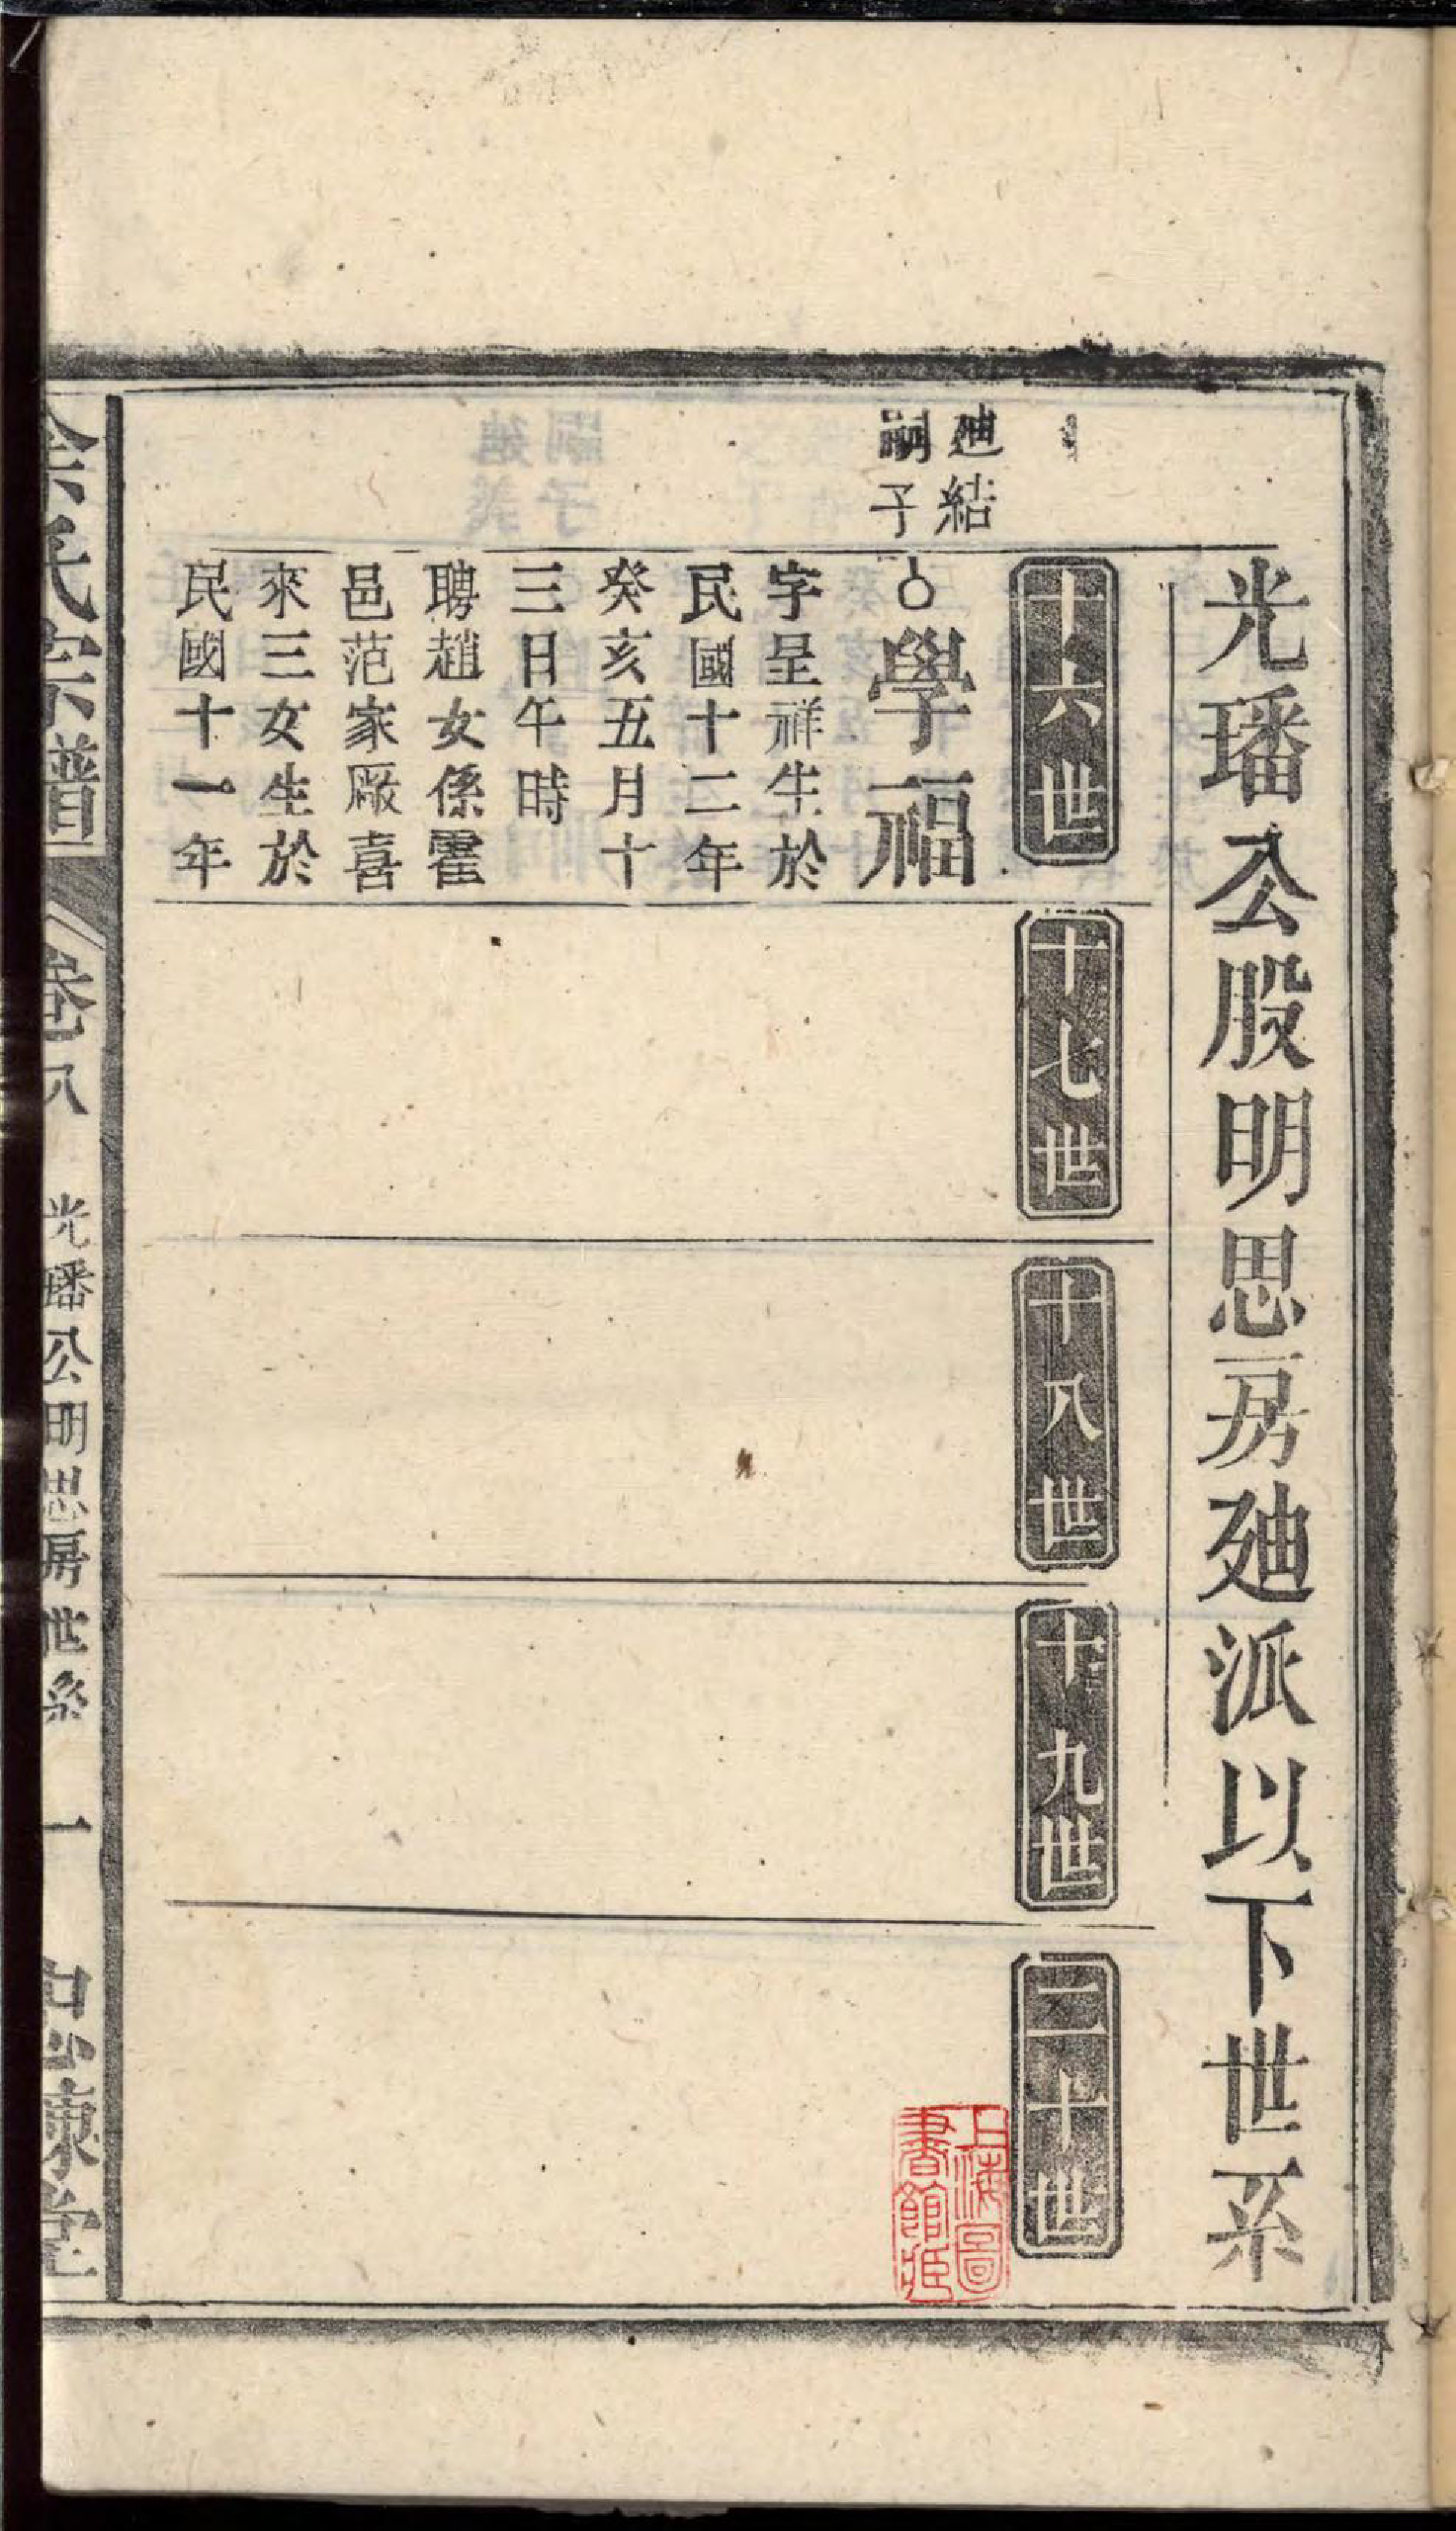 光璠公股明思房廸派以下世系
十六世
十七世
十八世
十九世
二十世
廸結
嗣子
學福
字呈祥生於
民國十二年
癸亥五月十
三日午時
聘趙女係霍
邑范家厰喜
來三女生於
民國十一年
氏宗譜
卷八
光璠公明思房世系
一
堂
上海圖
書館臧